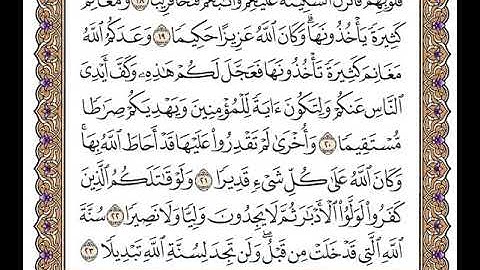 قُلُوبِهِمْ فَأَنزَلَ ٱلسَّكِينَةَ عَلَيْهِمْ وَأَثَٰبَهُمْ فَتْحًا قَرِيبًا ١٨ وَمَغَانِمَ
كَثِيرَةً يَأْخُذُونَهَا ۗ وَكَانَ ٱللَّهُ عَزِيزًا حَكِيمًا ١٩ وَعَدَكُمُ ٱللَّهُ
مَغَانِمَ كَثِيرَةً تَأْخُذُونَهَا فَعَجَّلَ لَكُمْ هَٰذِهِۦ وَكَفَّ أَيْدِىَ
ٱلنَّاسِ عَنكُمْ وَلِتَكُونَ ءَايَةً لِّلْمُؤْمِنِينَ وَيَهْدِيَكُمْ صِرَٰطًا
مُّسْتَقِيمًا ٢٠ وَأُخْرَىٰ لَمْ تَقْدِرُوا۟ عَلَيْهَا قَدْ أَحَاطَ ٱللَّهُ بِهَا ۚ
وَكَانَ ٱللَّهُ عَلَىٰ كُلِّ شَىْءٍ قَدِيرًا ٢١ وَلَوْ قَٰتَلَكُمُ ٱلَّذِينَ
كَفَرُوا۟ لَوَلَّوُا۟ ٱلْأَدْبَٰرَ ثُمَّ لَا يَجِدُونَ وَلِيًّا وَلَا نَصِيرًا ٢٢ سُنَّةَ
ٱللَّهِ ٱلَّتِى قَدْ خَلَتْ مِن قَبْلُ ۖ وَلَن تَجِدَ لِسُنَّةِ ٱللَّهِ تَبْدِيلًا ٢٣